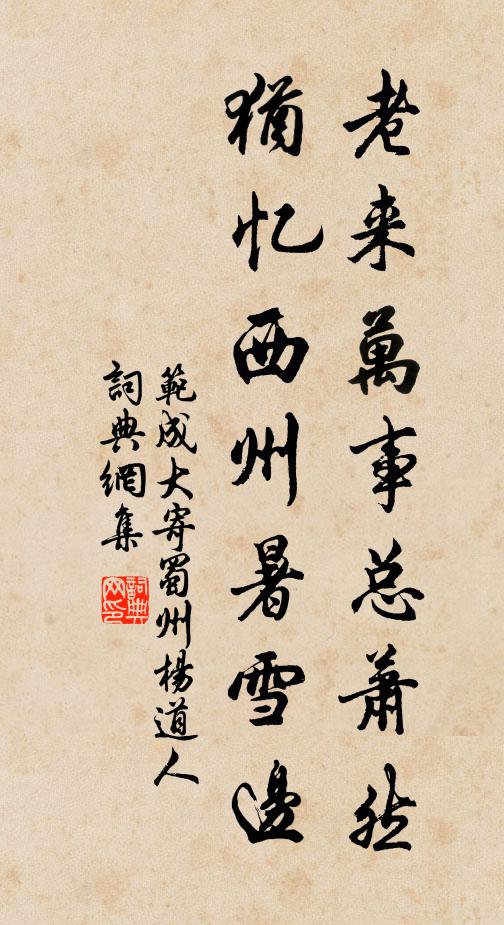 老来萬事总蕭然
猶忆西州暑雪邊
範成大寄蜀州楊道人
詞典網集
詞典网印